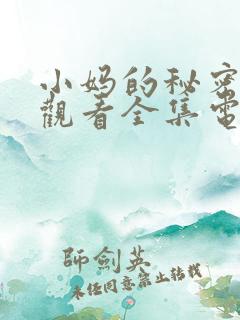 小妈的秘密
觀看全集電
師劍英
未经同意禁止转载